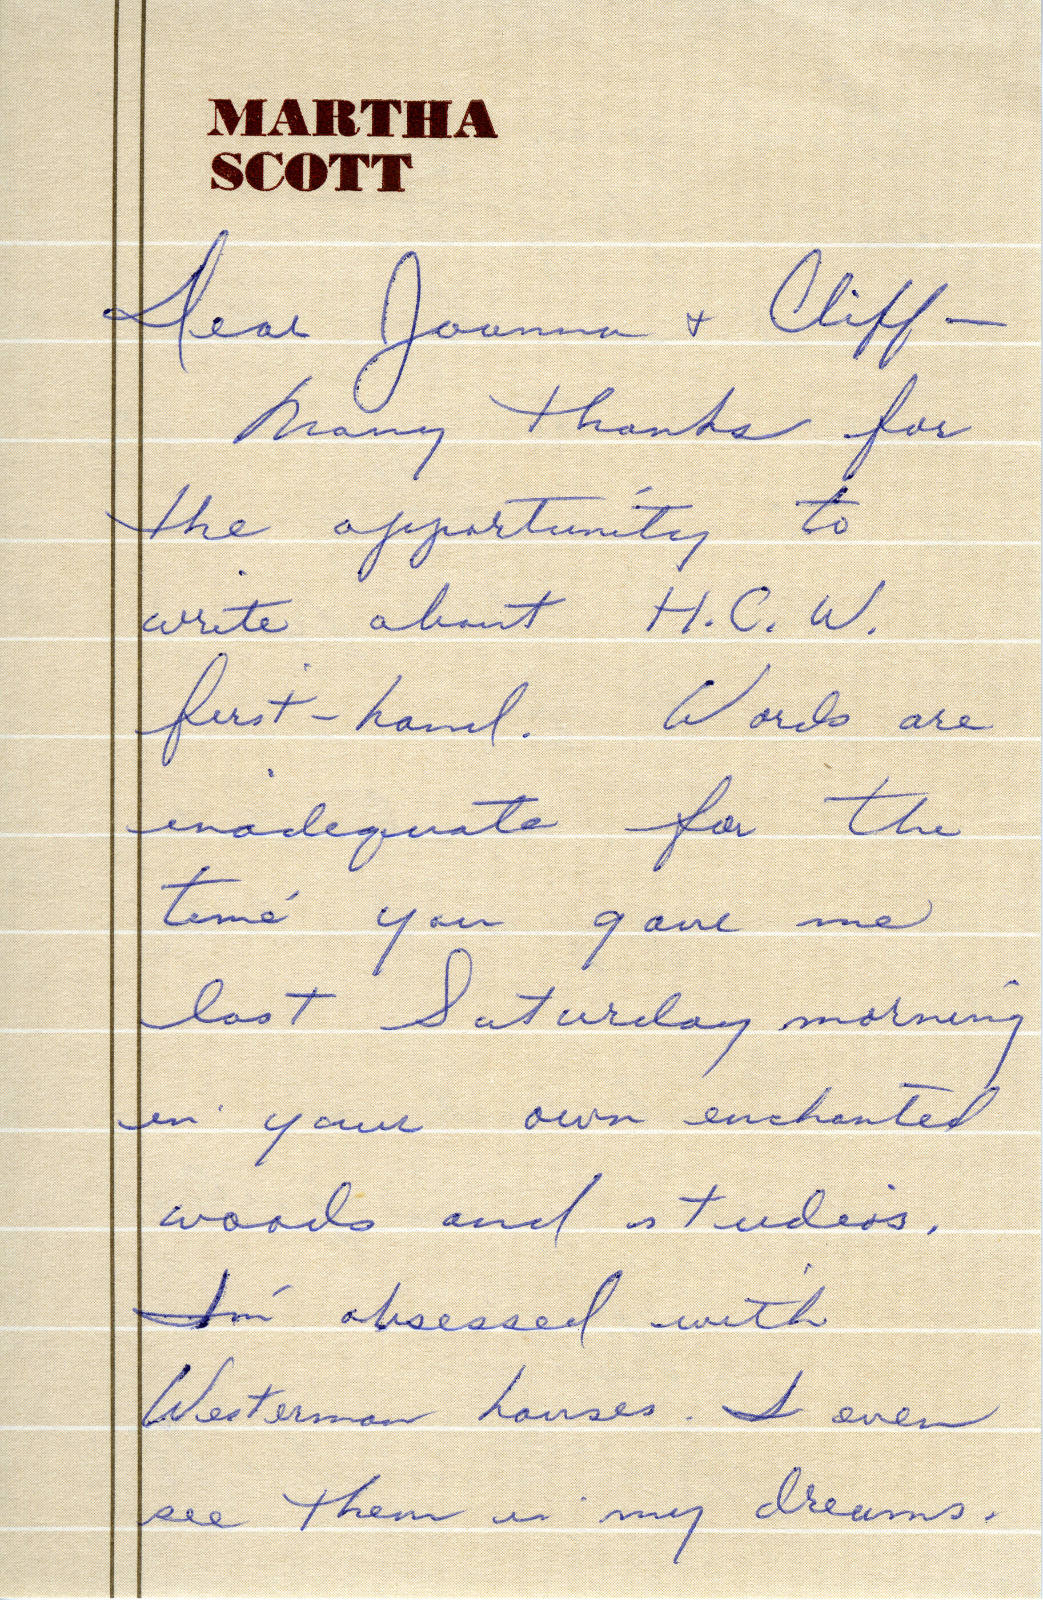 MARTHA
SCOTT
Dear Joanna + Cliff —
Many thanks for
the opportunity to
write about H.C.W.
first-hand. Words are
inadequate for the
time you gave me
last Saturday morning
in your own enchanted
woods and studios.
I'm obsessed with
Westerman houses. I even
see them in my dreams.